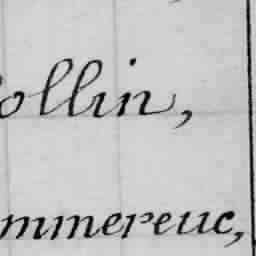 ollin,
mmereuc,